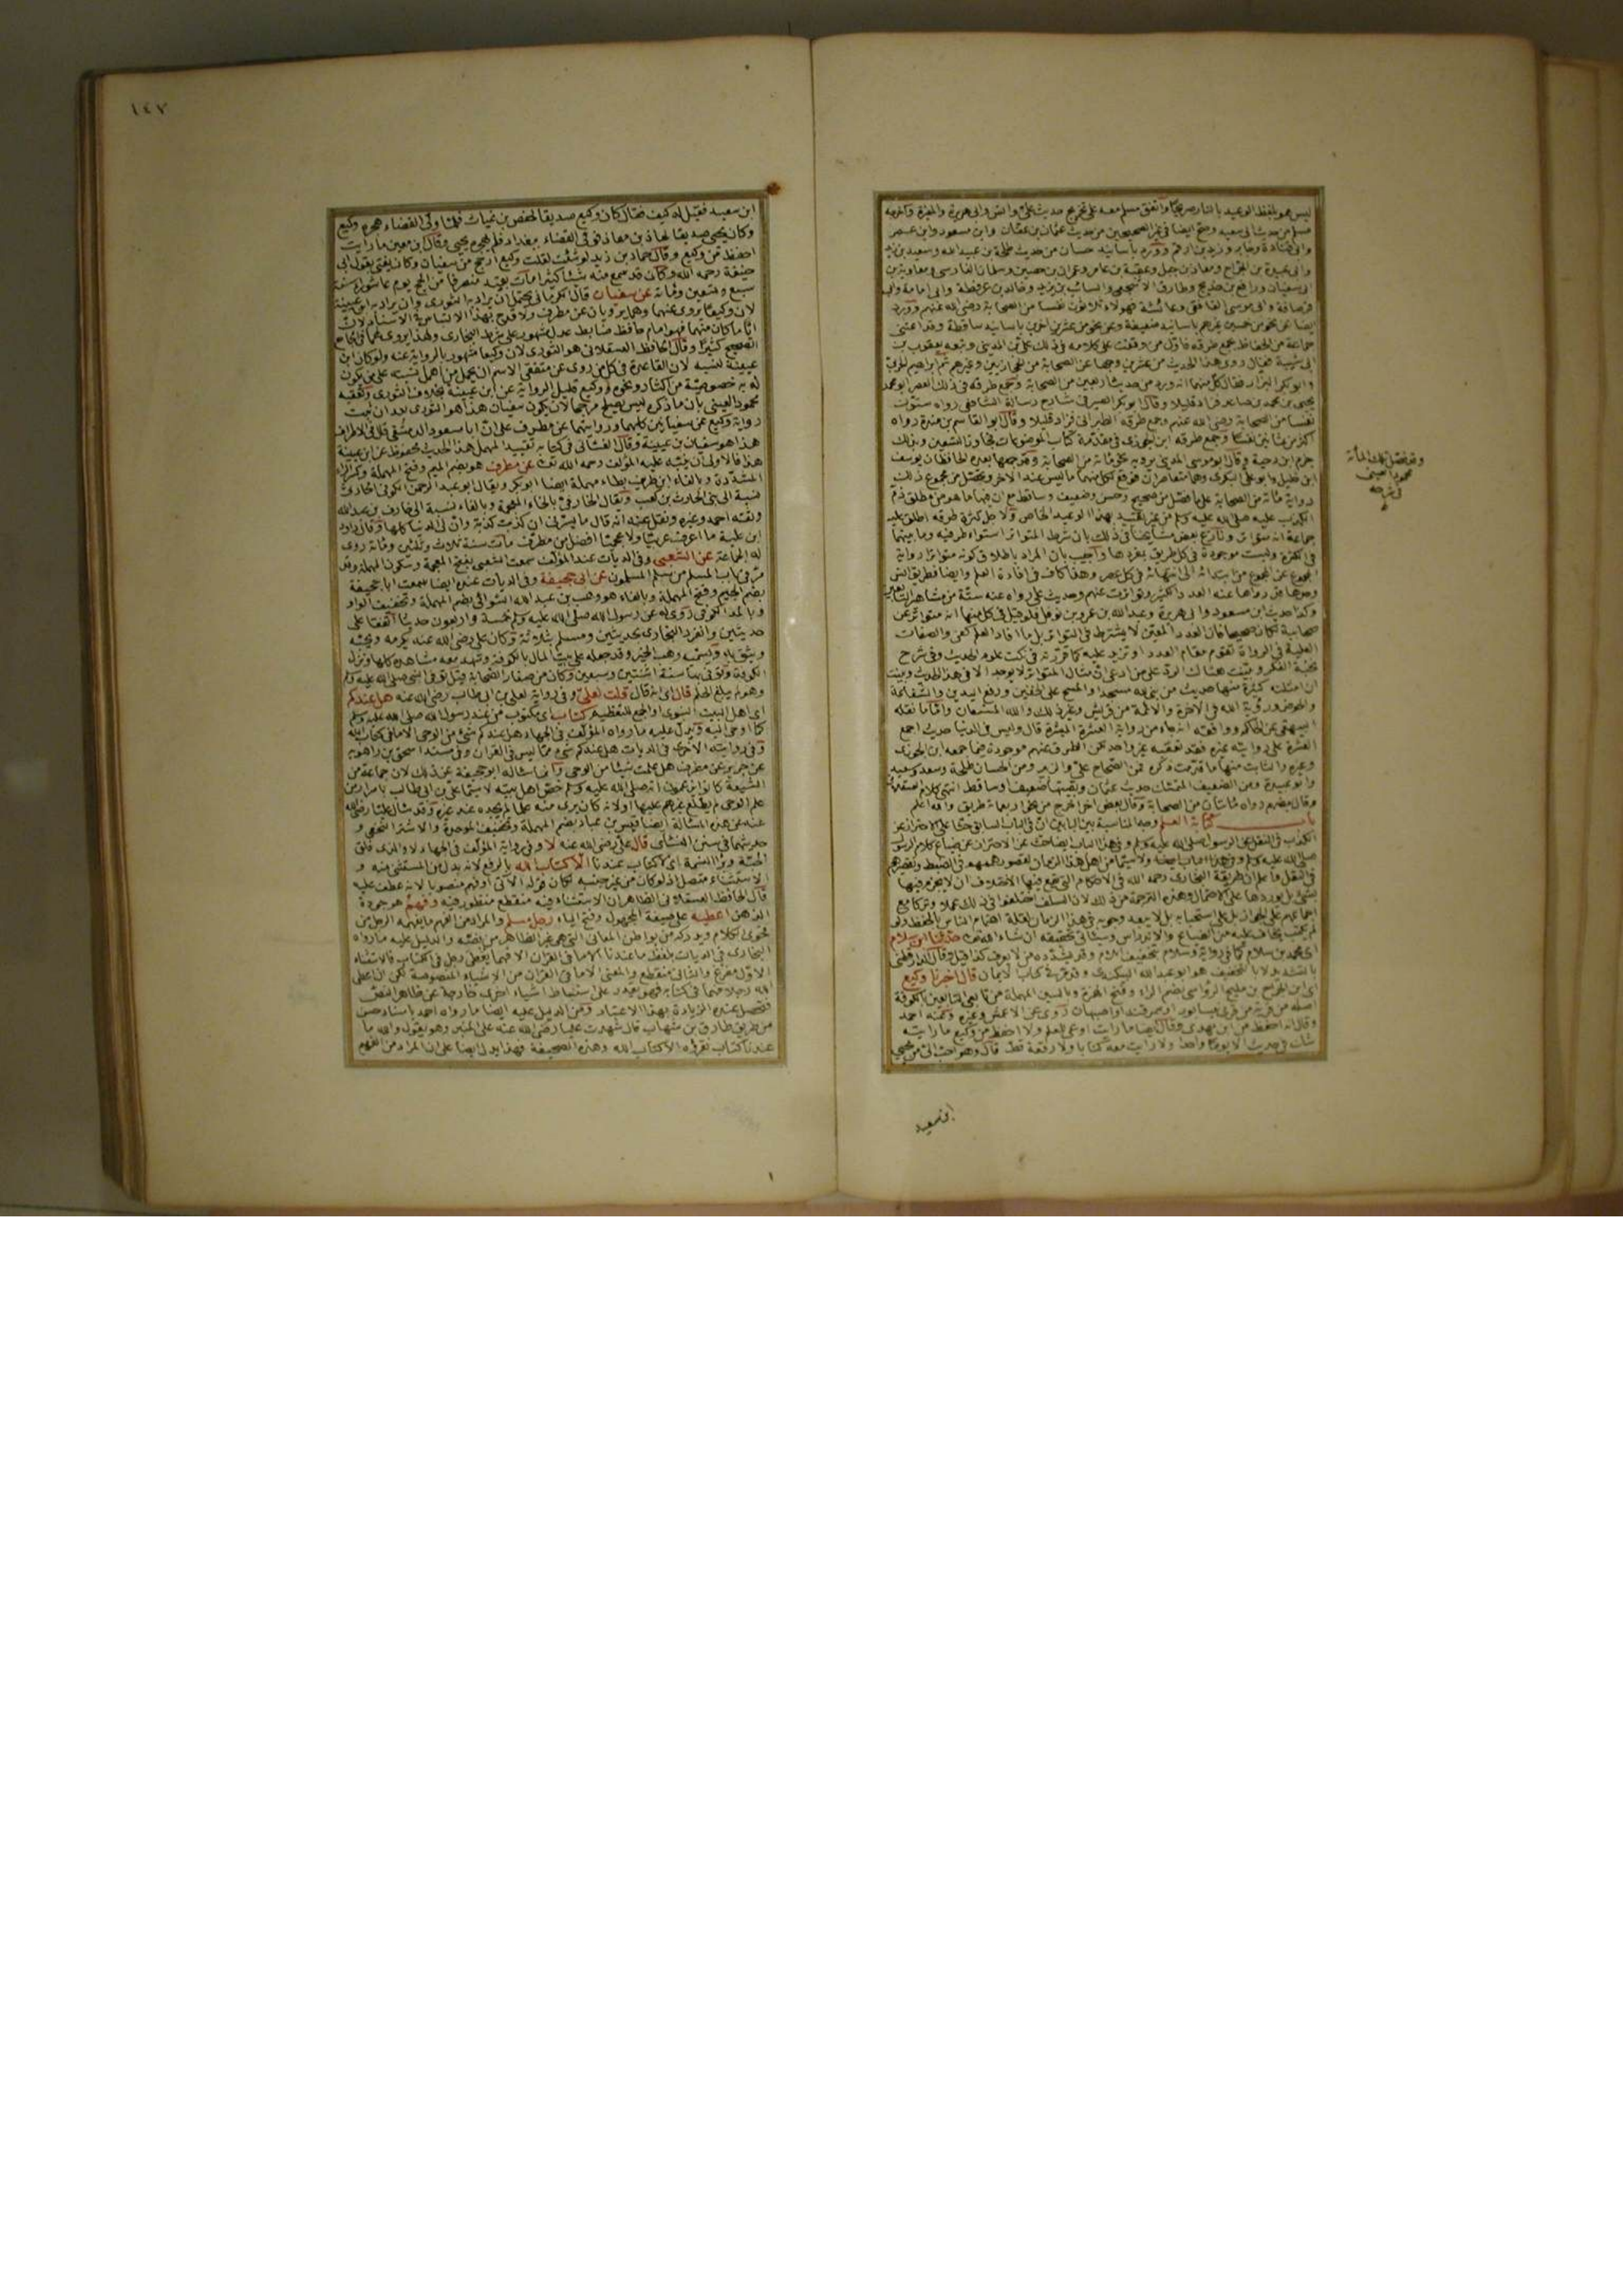 ليس هو بلفظ الوعيد بالنار صريحا واتفق مسلم معه على تخريج حديث علي وانس وابي هريرة والمغيرة واخرجه
مسلم من حديث ابي سعيد وصح ايضا في غير الصحيحين من حديث عثمان بن عفان وابن مسعود وابن عمر
وابي قتادة وجابر وزيد بن ارقم وورد باسانيد حسان من حديث طلحة بن عبيد الله وسعيد بن زيد
وابي عبيدة بن الجراح ومعاذ بن جبل وعقبة بن عامر وعمران بن حصين وسلمان الفارسي ومعاوية بن
ابي سفيان ورافع بن خديج وطارق الاشجعي والسائب بن يزيد وخالد بن عرفطة وابي امامة وابي
قرصافة وابي موسى الغافقي وعائشة فهولاء ثلاثون نفسا من الصحابة رضي الله عنهم وورد
ايضا عن نحو من خمسين غيرهم باسانيد ضعيفة وعن نحو من عشرين اخرين باسانيد ساقطة وقد اعتنى
جماعة من الحفاظ بجمع طرقه فاول من وقفت على كلامه في ذلك علي بن المديني وتبعه يعقوب بن
ابي شيبة فقال روى هذا الحديث من عشرين وجها عن الصحابة من الحجازيين وغيرهم ثم ابراهيم الحربي
وابو بكر البزار فقال كل منهما انه ورد من حديث اربعين من الصحابة وجمع طرقه في ذلك العصر ابو محمد
يحيى بن محمد بن صاعد فزاد قليلا وقال ابو بكر الصيرفي شارح رسالة الشافعي رواه ستون
نفسا من الصحابة رضي الله عنهم وجمع طرقه الطبراني فزاد قليلا وقال ابو القاسم بن منده رواه
اكثر من ثمانين نفسا وجمع طرقه ابن الجوزي في مقدمة كتاب الموضوعات فجاوز التسعين وبذلك
جزم ابن دحية وقال ابو موسى المديني يرويه نحو مائة من الصحابة وقد جمعها بعده الحافظان يوسف
ابن خليل وابو علي البكري وهما متعاصران فوقع لكل منهما ما ليس عند الاخر وتحصل من مجموع ذلك
رواية مائة من الصحابة على ما فصل من صحيح وحسن وضعيف وساقط مع ان فيها ما هو من مطلق ذم
الكذب عليه صلى الله عليه وسلم من غير تقييد بهذا الوعيد الخاص ولاجل كثرة طرقه اطلق عليه
جماعة انه متواتر ونازع بعض مشايخنا في ذلك بان شرط المتواتر استواء طرفيه وما بينهما
في الكثرة وليست موجودة في كل طريق بمفردها واجيب بان المراد باطلاق كونه متواترا رواية
المجموع عن المجموع من ابتدائه الى انتهائه في كل عصر وهذا كاف في افادة العلم وايضا فطريق انس
وحدها قد رواها عنه العدد الكثير وتواترت عنهم وحديث علي رواه عنه ستة من مشاهير التابعين
وكذا حديث ابن مسعود وابي هريرة وعبد الله بن عمرو بن نوفل فلو قيل في كل منها انه متواتر عن
صحابيه لكان صحيحا فان العدد المعين لا يشترط في التواتر بل ما افاد العلم كفى والصفات
العلية في الرواة تقوم مقام العدد او تزيد عليه كما قررته في نكت علوم الحديث وفي شرح
نخبة الفكر وبينت هناك الرد على من ادعى ان مثال المتواتر لا يوجد الا في هذا الحديث وبينت
ان امثلته كثيرة منها حديث من بنى لله مسجدا والمسح على الخفين ورفع اليدين والشفاعة
والحوض ورؤية الله في الاخرة والائمة من قريش وغير ذلك والله المستعان واما ما نقله
البيهقي عن الحاكم ووافقه انه جاء من رواية العشرة المبشرة قال وليس في الدنيا حديث اجمع
العشرة على روايته غيره فقد تعقبه غير واحد لكن الطرق عنهم موجودة فيما جمعه ابن الجوزي
وغيره والثابت منها ما قدمت ذكره فمن الصحاح علي والزبير ومن الحسان طلحة وسعد وسعيد
وابو عبيدة ومن الضعيف المتمسك حديث عثمان وبقيتها ضعيف وساقط انتهى كلام العسقلاني
وقال بعضهم رواه مائتان من الصحابة وقال بعض اخر اخرج من نحو اربعمائة طريق والله اعلم
باب كتابة العلم وجه المناسبة بين البابين ان في الباب السابق حثا على الاحتراز عن
الكذب في النقل عن الرسول صلى الله عليه وسلم وفي هذا الباب ايضا حث على الاحتراز عن ضياع كلام الرسول
صلى الله عليه وسلم ولاسيما من اهل هذا الزمان لقصور هممهم في الضبط وتقصيرهم
في النقل واعلم ان طريقة البخاري رحمه الله في الاحكام التي تقع فيها الاختلاف ان لا يجزم فيها
بشيء بل يوردها على الاحتمال وهذه الترجمة من ذلك لان السلف اختلفوا في ذلك عملا وتركا مع
اجماعهم على الجواز بل على استحبابه بل لا يبعد وجوبه في هذا الزمان لقلة اهتمام الناس بالحفظ ولو
لم يكتب يخاف عليه من الضياع والاندراس وسيأتي تحقيقه ان شاء الله تعالى حدثنا ابن سلام
اي محمد بن سلام كما في رواية وسلام بتخفيف اللام وقد يشدده من لا يعرف كذا قيل وقال الدارقطني
بالتشديد لا بالتخفيف هو ابو عبد الله البيكندي وقد مر في كتاب الايمان قال اخبرنا وكيع
اي ابن الجراح بن مليح الرؤاسي بضم الراء وفتح الهمزة وبالسين المهملة من تابعي التابعين الكوفة
اصله من قرية من قرى نيسابور او سمرقند او اصبهان روى عن الاعمش وغيره وعنه احمد
وقال انه احفظ من ابن مهدي وقال ايضا ما رأيت اوعى للعلم ولا احفظ من وكيع ما رأيته
شك في حديث الا يوما واحدا ولا رأيت معه كتابا ولا رقعة قط قال وهو احب الي من يحيى
وقد تحصل تلك المائة
محمود العيني
في شرحه
ابن سعيد
١٤٧
ابن سعيد فقيل له كيف فقال كان وكيع صديقا لحفص بن غياث فلما ولي القضاء هجره وكيع
وكان يحيى صديقا لمعاذ بن معاذ فولي القضاء ببغداد فلم يهجره يحيى وقال ابن معين ما رأيت
احفظ من وكيع وقال حماد بن زيد لو شئت لقلت وكيع ارجح من سفيان وكان يفتي بقول ابي
حنيفة رحمه الله وكان قد سمع منه شيئا كثيرا مات بفيد منصرفا من الحج يوم عاشوراء سنة
سبع وتسعين ومائة عن سفيان قال الكرماني يحتمل ان يراد به الثوري وان يراد به ابن عيينة
لان وكيعا يروي عنهما وهما يرويان عن مطرف ولا قدح بهذا الالتباس في الاسناد لان
ايا ما كان منهما فهو امام حافظ ضابط عدل مشهور على شرط البخاري ولهذا يروي لهما في الجامع
الصحيح كثيرا وقال الحافظ العسقلاني هو الثوري لان وكيعا مشهور بالرواية عنه ولو كان ابن
عيينة لنسبه لان القاعدة في كل من روى عن متفقي الاسم ان يحمل من اهمل نسبته على من يكون
له به خصوصية من اكثار ونحوه ووكيع قليل الرواية عن ابن عيينة بخلاف الثوري وتعقبه
محمود العيني بان ما ذكره ليس يصلح مرجحا لان يكون سفيان هذا هو الثوري بعد ان ثبت
رواية وكيع عن سفيانين كليهما وروايتهما عن مطرف على ان ابا مسعود الدمشقي قال في الاطراف
هذا هو سفيان بن عيينة وقال الغساني في كتابه تقييد المهمل هذا الحديث محفوظ عن ابن عيينة
هذا فالاولى ان ينبه عليه المؤلف رحمه الله تعالى عن مطرف هو بضم الميم وفتح المهملة وكسر الراء
المشددة وبالفاء ابن طريف بطاء مهملة ايضا ابو بكر ويقال ابو عبد الرحمن الكوفي الحارثي
نسبة الى بني الحارث بن كعب ويقال الخارفي بالخاء المعجمة وبالفاء نسبة الى خارف بن عبد الله
وثقه احمد وغيره ونقل عنه انه قال ما يسرني ان كذبت كذبة وان لي الدنيا كلها وقال داود
ابن علية ما اعرف عربيا ولا عجميا افضل من مطرف مات سنة ثلاث وثلثين ومائة روى
له الجماعة عن الشعبي وفي الديات عند المؤلف سمعت الشعبي بفتح المعجمة وسكون المهملة وقد
مر في باب المسلم من سلم المسلمون عن ابي جحيفة وفي الديات عنده ايضا سمعت ابا جحيفة
بضم الجيم وفتح المهملة وبالفاء هو وهب بن عبد الله السوائي بضم المهملة وتخفيف الواو
وبالمد الكوفي روى له عن رسول الله صلى الله عليه وسلم خمسة واربعون حديثا اتفقا على
حديثين وانفرد البخاري بحديثين ومسلم بثلاثة وكان علي رضي الله عنه يكرمه ويحبه
ويثق به ويسميه وهب الخير وقد جعله على بيت المال بالكوفة وشهد معه مشاهده كلها ونزل
الكوفة وتوفي بها سنة اثنتين وسبعين وكان من صغار الصحابة قيل توفي النبي صلى الله عليه وسلم
وهو لم يبلغ الحلم قال اي انه قال قلت لعلي وفي رواية لعلي بن ابي طالب رضي الله عنه هل عندكم
اي اهل البيت النبوي او الجمع للتعظيم كتاب اي مكتوب من عند رسول الله صلى الله عليه وسلم
مما اوحي اليه ويدل عليه ما رواه المؤلف في الجهاد هل عندكم شيء من الوحي الا ما في كتاب الله
وفي روايته الاخرى في الديات هل عندكم شيء مما ليس في القرآن وفي مسند اسحق بن راهويه
عن جرير عن مطرف هل علمت شيئا من الوحي وانما سأله ابو جحيفة عن ذلك لان جماعة من
الشيعة كانوا يزعمون انه صلى الله عليه وسلم خص اهل بيته لا سيما علي بن ابي طالب باسرار من
علم الوحي لم يطلع غيرهم عليها او لانه كان يرى منه علما لم يجده عند غيره وقد سأل عليا رضي الله
عنه عن هذه المسألة ايضا قيس بن عباد بضم المهملة وتخفيف الموحدة والاشتر النخعي و
حديثهما في سنن النسائي قال علي رضي الله عنه لا وفي رواية المؤلف في الجهاد لا والذي فلق
الحبة وبرأ النسمة اي لا كتاب عندنا الا كتاب الله بالرفع لانه بدل من المستثنى منه و
الاستثناء متصل اذ لو كان من غير جنسه لكان قوله الاتي او فهم منصوبا لانه عطف عليه
قال الحافظ العسقلاني الظاهر ان الاستثناء فيه منقطع منظور فيه وفهم هو جودة
الذهن اعطيه على صيغة المجهول وفتح الياء رجل مسلم والمراد من الفهم ما يفهمه الرجل من
فحوى الكلام ويدركه من بواطن المعاني التي هي غير الظاهر من نصه والدليل عليه ما رواه
البخاري في الديات بلفظ ما عندنا الا ما في القرآن الا فهما يعطى رجل في الكتاب فالاستثناء
الاول مفرغ والثاني منقطع والمعنى الا ما في القرآن من الاشياء المنصوصة لكن ان اعطى
الله رجلا فهما في كتابه فهو يقدر على استنباط اشياء اخرى خارجة عن ظاهر النص
فتحصل عنده الزيادة بهذا الاعتبار ومن الدليل عليه ايضا ما رواه احمد باسناد حسن
من طريق طارق بن شهاب قال شهدت عليا رضي الله عنه على المنبر وهو يقول والله ما
عندنا كتاب نقرؤه الا كتاب الله وهذه الصحيفة فهذا يدل ايضا على ان المراد من الفهم